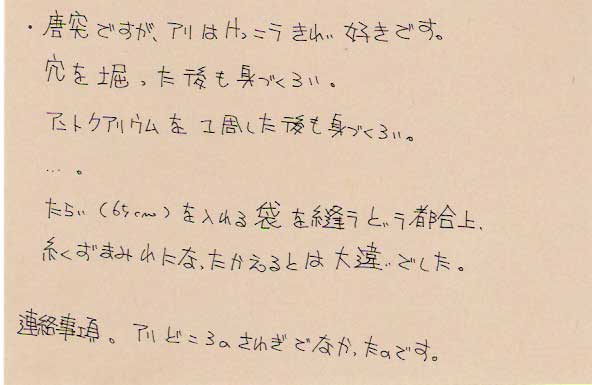 ・唐突ですが、アリはけっこうきれい好きです。
穴を掘った後も身づくろい。
アントクアリウムを1周した後も身づくろい。
…。
たらい(65cm)を入れる袋を縫うという都合上、
糸くずまみれになったかえるとは大違いでした。
連絡事項。アリどころのさわぎでなかったのです。